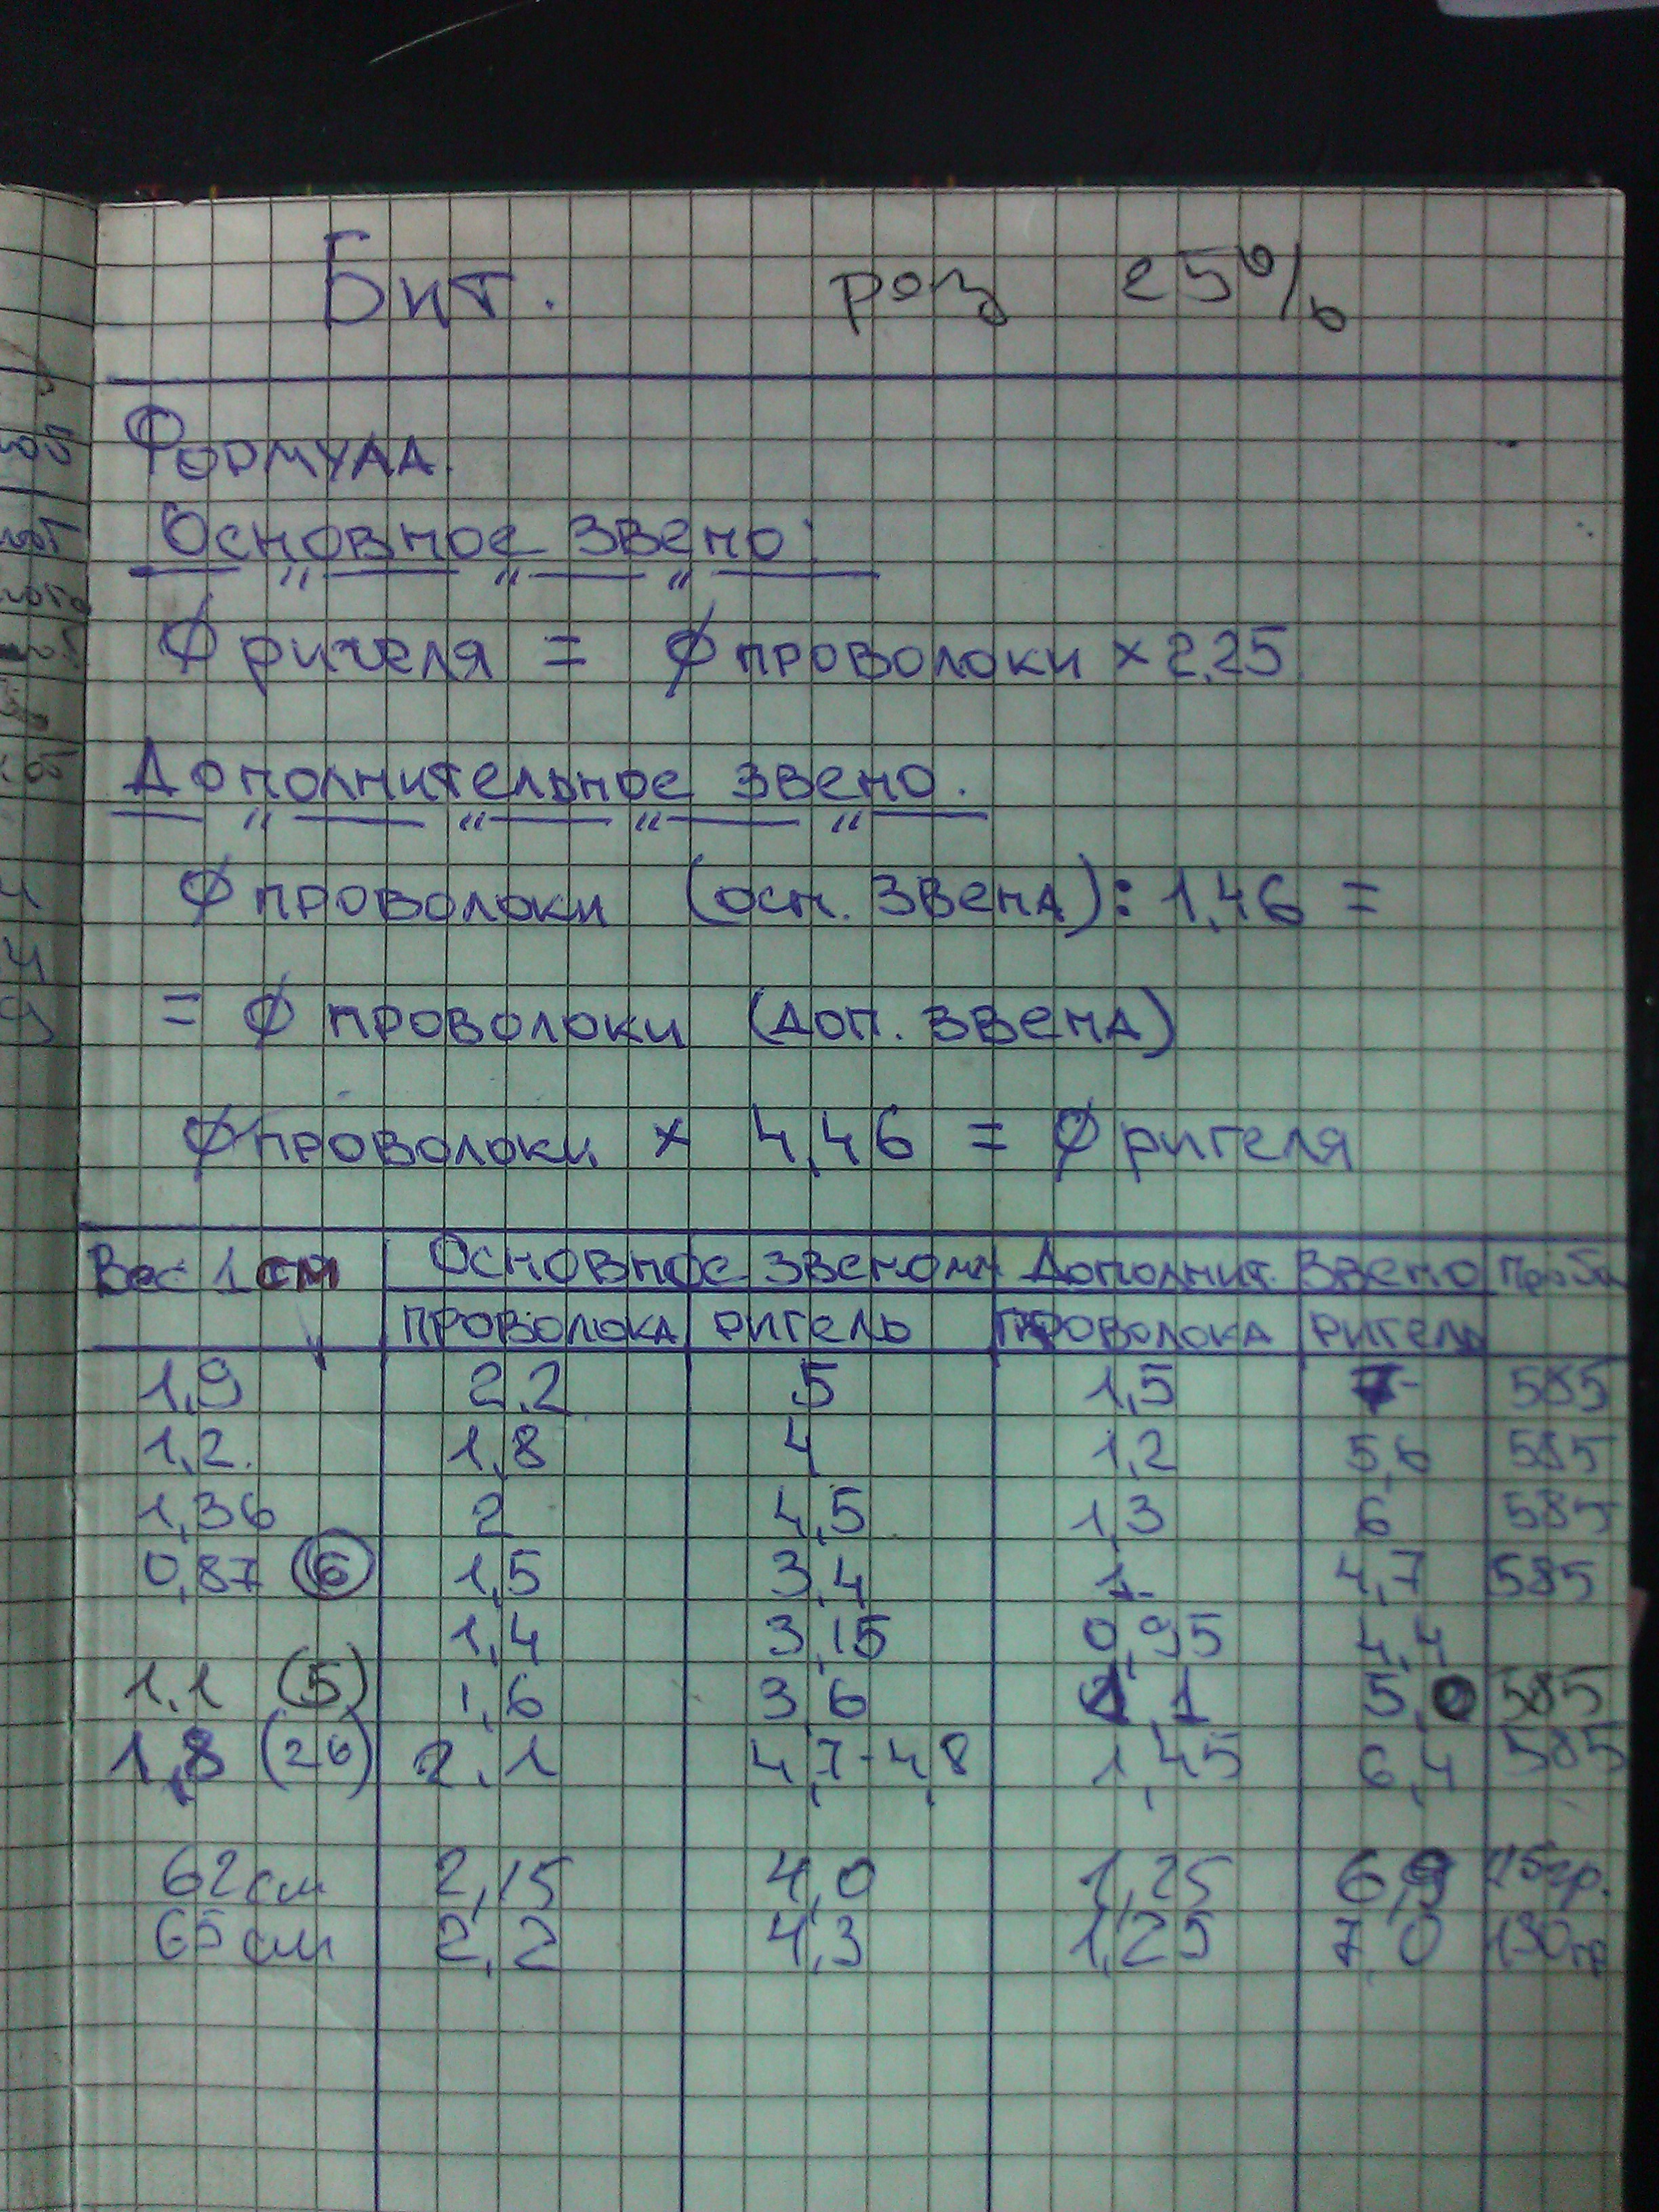 Бит. роз 25%
Формула.
Основное звено:
Ø ригеля = Ø проволоки × 2,25
Дополнительное звено.
Ø проволоки (осн. звена) : 1,46 =
= Ø проволоки (доп. звена)
Ø проволоки × 4,46 = Ø ригеля
Вес 1 см Основное звено Дополнит. звено Проба
проволока ригель проволока ригель
1,9 2,2 5 1,5 7- 585
1,2. 1,8 4 1,2 5,6 585
1,36 2 4,5 1,3 6 585
0,87 (6) 1,5 3,4 1- 4,7 585
1,4 3,15 0,95 4,4
1,1 (5) 1,6 3,6 1,1 5,0 585
1,8 (26) 2,1 4,7-4,8 1,45 6,4 585
62 см 2,15 4,0 1,25 6,9
65 см 2,2 4,3 1,25 7,0 130 гр